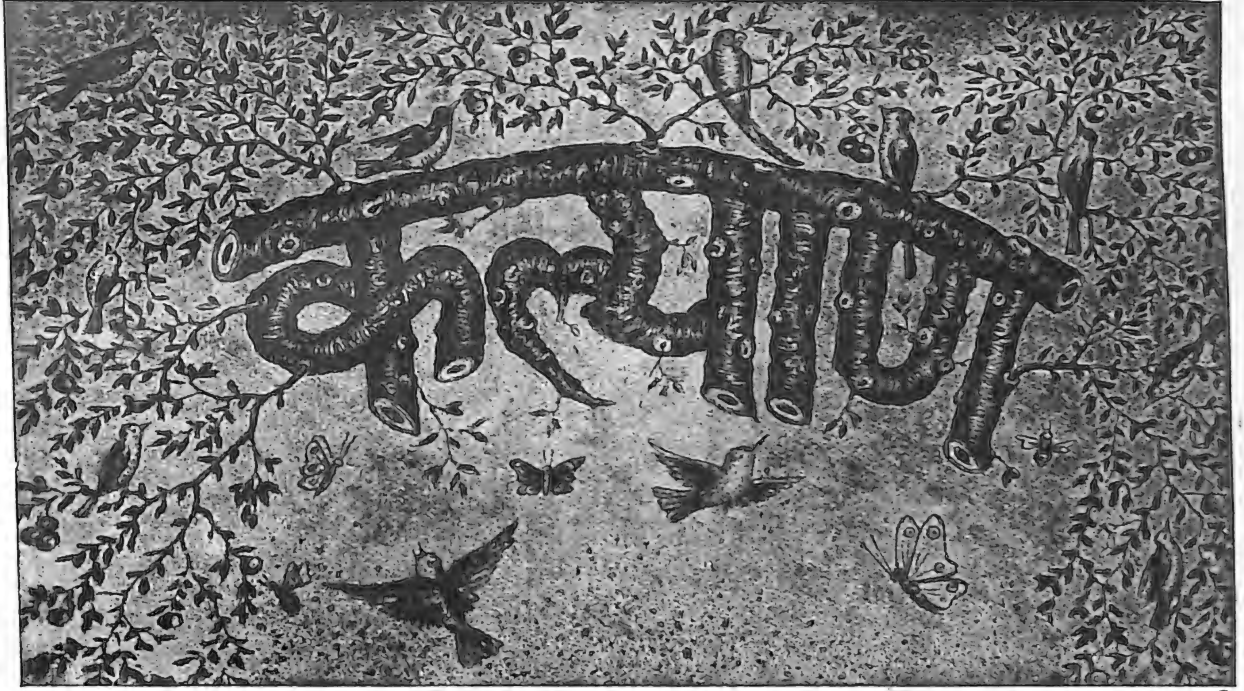 कल्याण